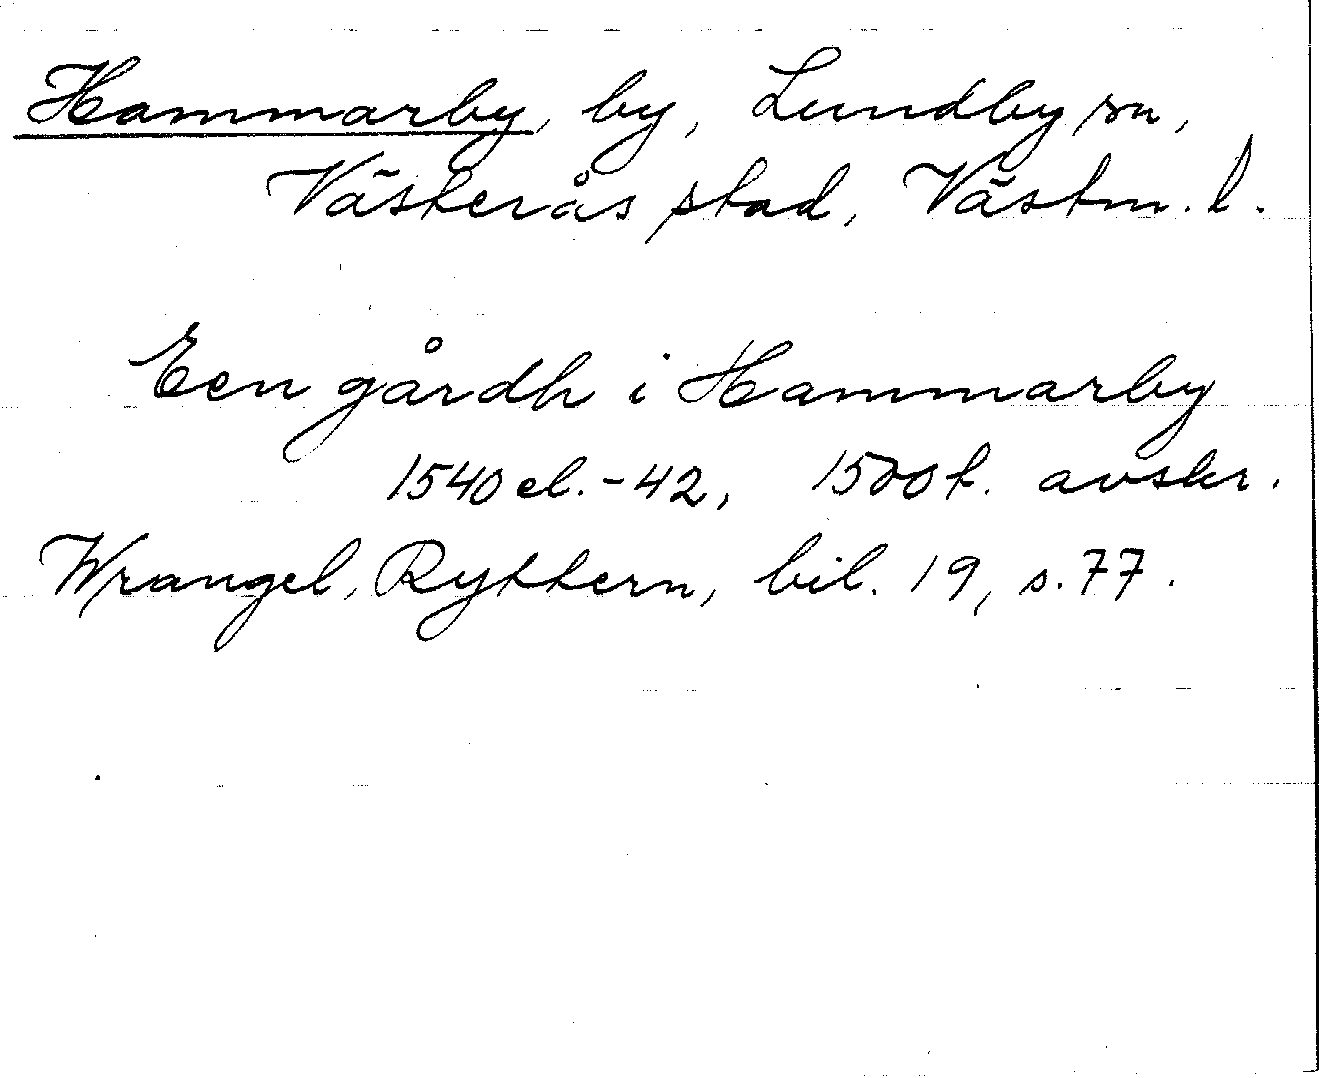 Hammarby, by, Lundby sn,
Västerås stad, Västm. l.
Een gårdh i Hammarby
1540 el. -42, 1500 t. avskr.
Wrangel, Ryttern, bil. 19, s. 77.